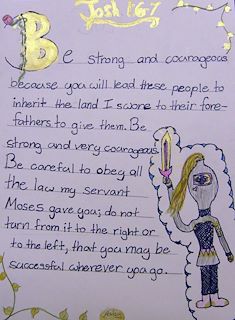 Josh 1:6-7
Be strong and courageous
because you will lead these people to
inherit the land I swore to their fore-
fathers to give them. Be
strong and very courageous.
Be careful to obey all
the law my servant
Moses gave you; do not
turn from it to the right or
to the left, that you may be
successful wherever you go.